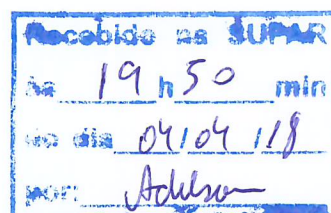 Recebido na SUPAR
às 19 h 50 min
do dia 04/04/18
por: Adelson